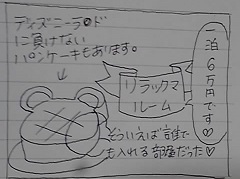 一泊6万円です♡
リラックマ
ルーム
ディズニーラ○ド
に負けない
パンケーキもあります。
そういえば誰で
も入れる部屋だった♡